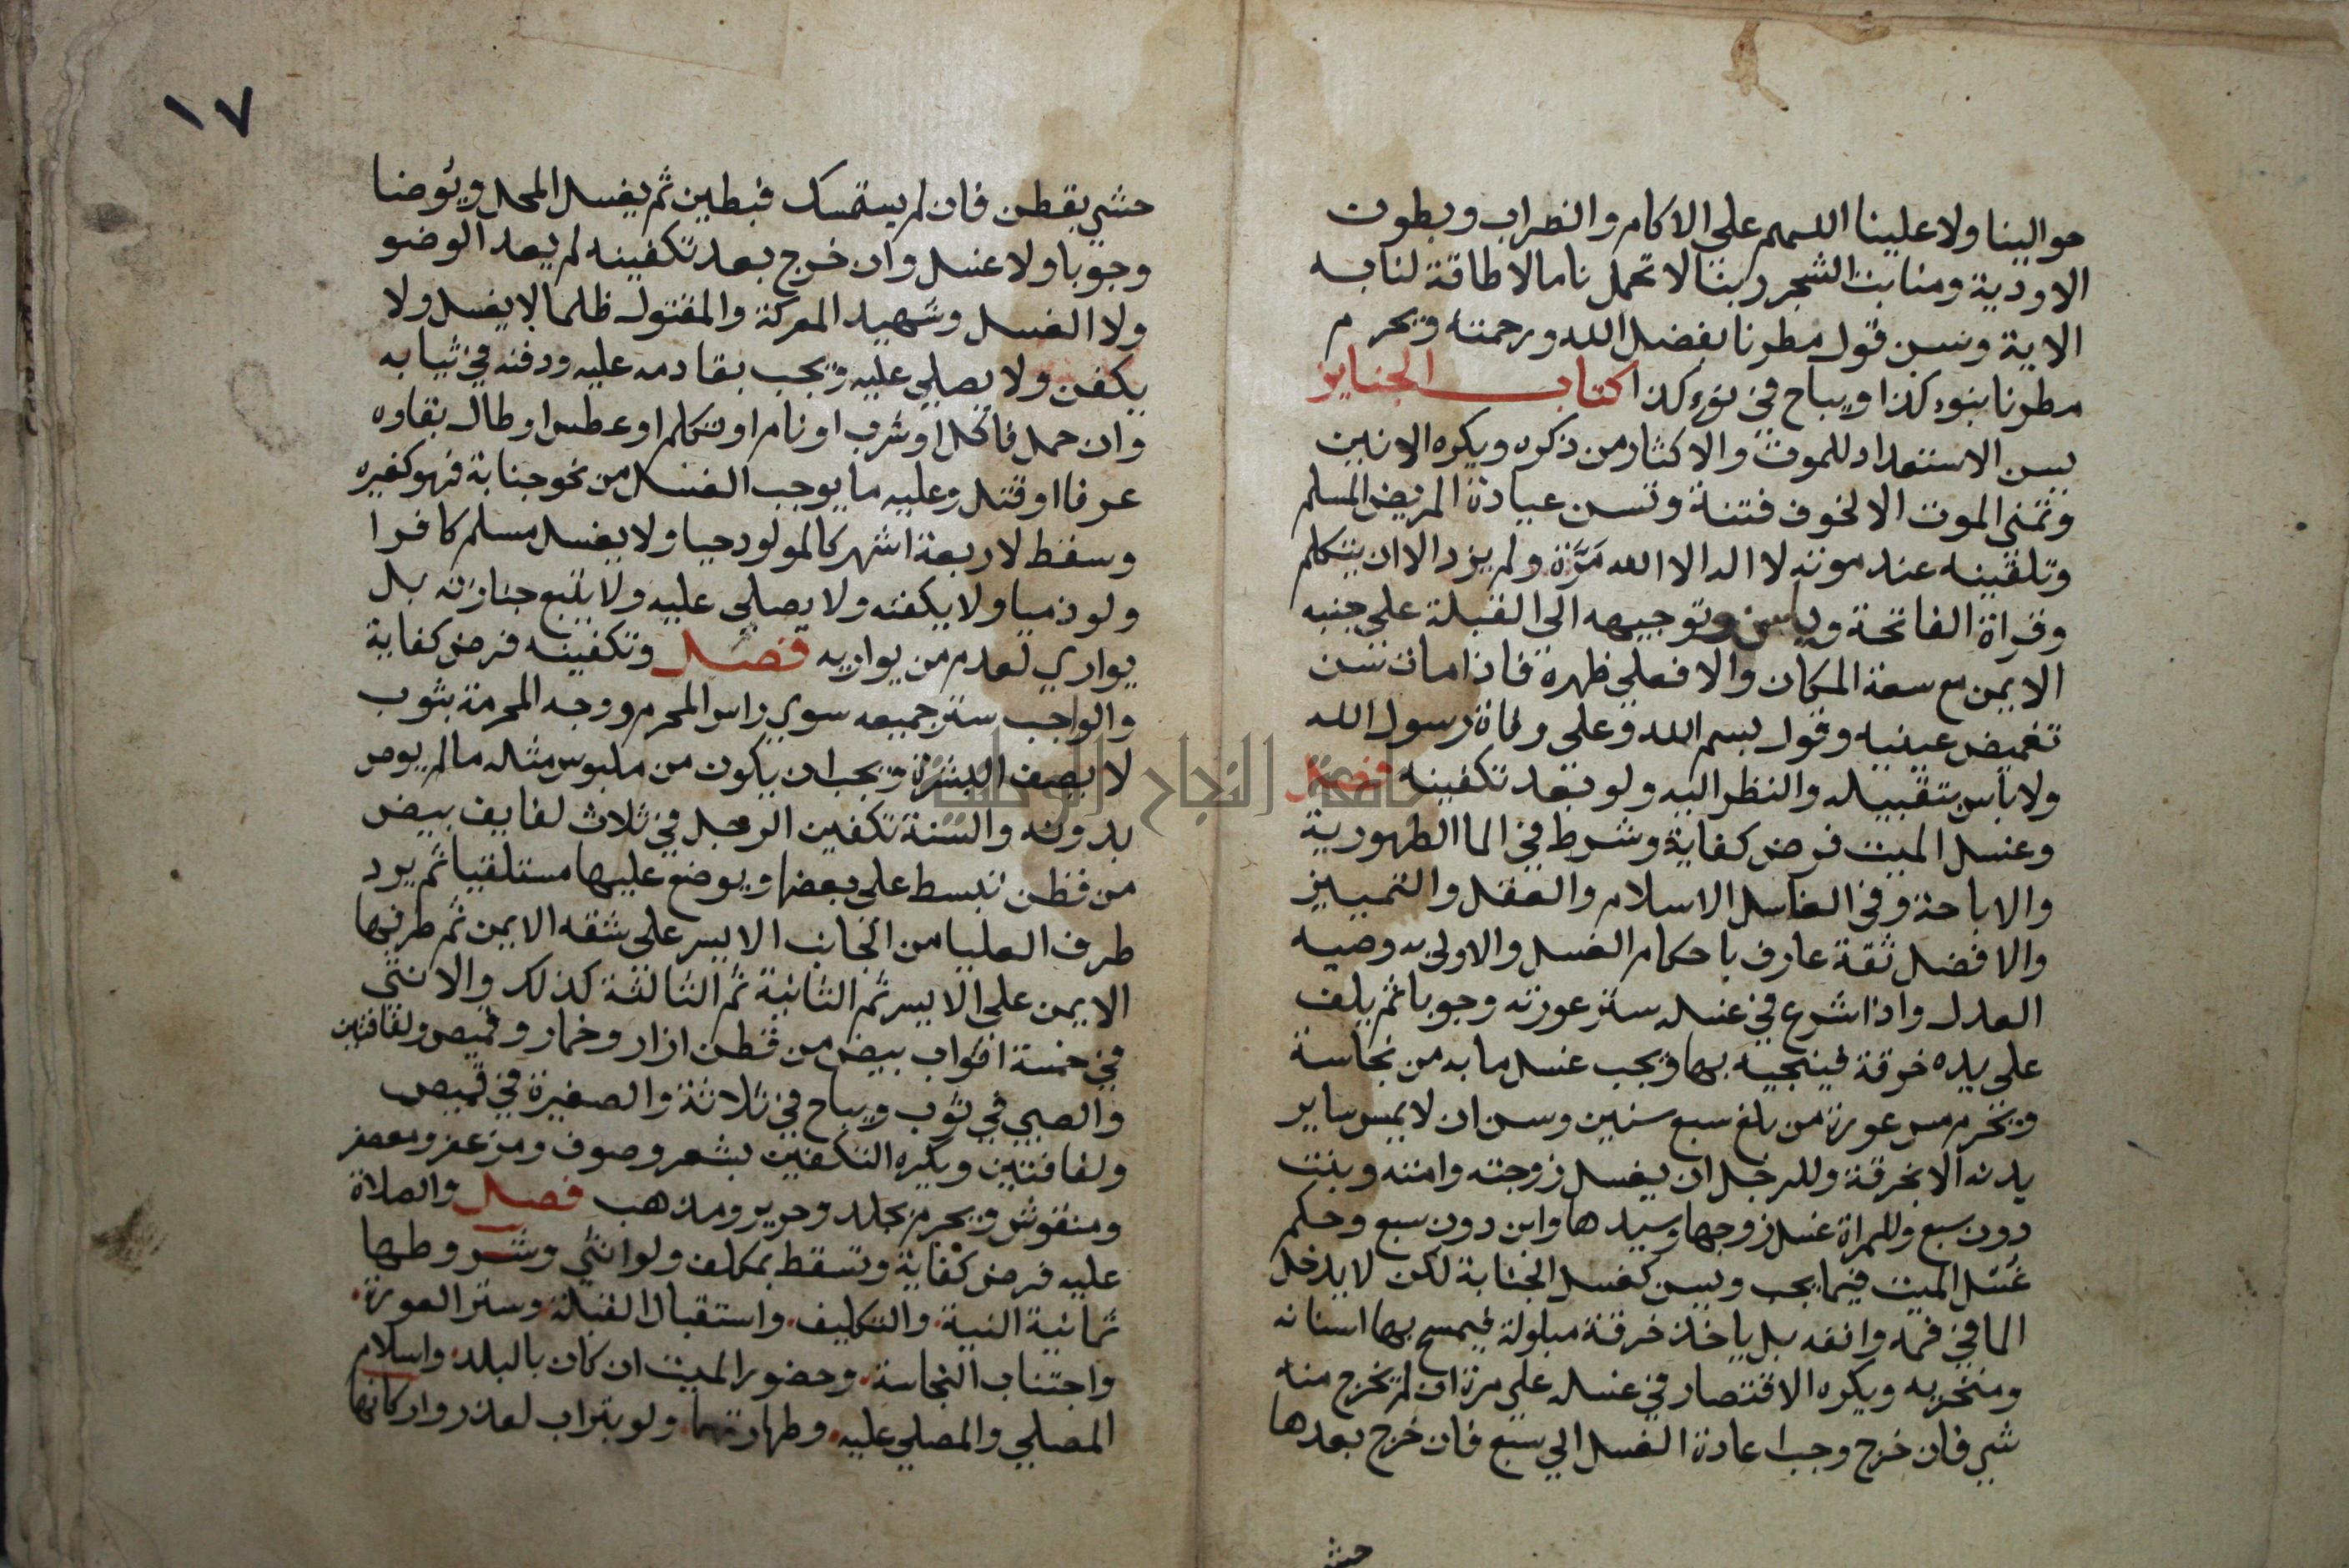 حوالينا ولا علينا اللهم على الاكام والضراب وبطون
الاودية ومنابت الشجر ربنا لا تحملنا ما لا طاقة لنا به
الاية وسن قول مطرنا بفضل الله ورحمته ويحرم
مطرنا بنوء كذا ويباح في نوء كذا كتاب الجنايز
يسن الاستعداد للموت والاكثار من ذكره ويكره الانين
وتمني الموت الا لخوف فتنة وتسن عيادة المريض المسلم
وتلقينه عند موته لا اله الا الله مَرَّة ولم يزد الا ان يتكلم
وقراة الفاتحة وياسن وتوجيهه الى القبلة على جنبه
الايمن مع سعة المكان والا فعلي ظهره فاذا مات سن
تغميض عينيه وقول بسم الله وعلي وفاة رسول الله
ولا باس بتقبيله والنظر اليه ولو بعد تكفينه فصل
وغسل الميت فرض كفاية وشرط في الما الطهورية
والاباحة وفي الغاسل الاسلام والعقل والتمييز
والافضل ثقة عارف باحكام الغسل والاولى به وصيه
العدل واذا شرع في غسله ستر عورته وجوبا ثم يلف
على يده خرقة فينجيه بها ويجب غسل ما به من نجاسة
ويحرم مس عورة من بلغ سبع سنين وسن ان لا يمس ساير
بدنه الا بخرقة وللرجل ان يغسل زوجته وامته وبنت
دون سبع وللمراة غسل زوجها وسيدها وابن دون سبع وحكم
غسل الميت فيما يجب ويسن كغسل الجنابة لكن لا يدخل
الما في فمه وانفه بل ياخذ خرقة مبلولة فيمسح بها اسنانه
ومنخريه ويكره الاقتصار في غسله علي مرة ان لم يخرج منه
شي فان خرج وجب اعادة الغسل الي سبع فان خرج بعدها
حشي
١٧
حشي بقطن فان لم يستمسك فبطين ثم يغسل المحل ويوضا
وجوبا ولا غسل وان خرج بعد تكفينه لم يعد الوضو
ولا الغسل وشهيد المعركة والمقتول ظلما لا يغسل ولا
يكفن ولا يصلي عليه ويجب بقا دمه عليه ودفنه في ثيابه
وان حمل فاكل او شرب او نام او تكلم او عطس او طال بقاوه
عرفا او قتل وعليه ما يوجب الغسل من نحو جنابة فهو كغيره
وسقط لاربعة اشهر كالمولود حيا ولا يغسل مسلم كافرا
ولو ذميا ولا يكفنه ولا يصلي عليه ولا يتبع جنازته بل
يواري لعدم من يواريه فصل وتكفينه فرض كفاية
والواجب ستر جميعه سوي راس المحرم ووجه المحرمة بثوب
لا يصف البشرة ويجب ان يكون من ملبوس مثله ما لم يوص
بدونه والسنة تكفين الرجل في ثلاث لفايف بيض
من قطن تبسط على بعضها ويوضع عليها مستلقيا ثم يرد
طرف العليا من الجانب الايسر على شقه الايمن ثم طرفها
الايمن على الايسر ثم الثانية ثم الثالثة كذلك والانثى
في خمسة اثواب بيض من قطن ازار وخمار وقميص ولفافتين
والصبي في ثوب ويباح في ثلاثة والصغيرة في قميص
ولفافتين ويكره التكفين بشعر وصوف ومزعفر ومعصفر
ومنقوش ويحرم بجلد وحرير ومذهب فصل والصلاة
عليه فرض كفاية وتسقط بمكلف ولو انثي وشروطها
ثمانية النية والتكليف واستقبال القبلة وستر العورة
واجتناب النجاسة وحضور الميت ان كان بالبلد واسلام
المصلي والمصلي عليه وطهارتهما ولو بتراب لعذر واركانها
جامعة النجاح الوطنية